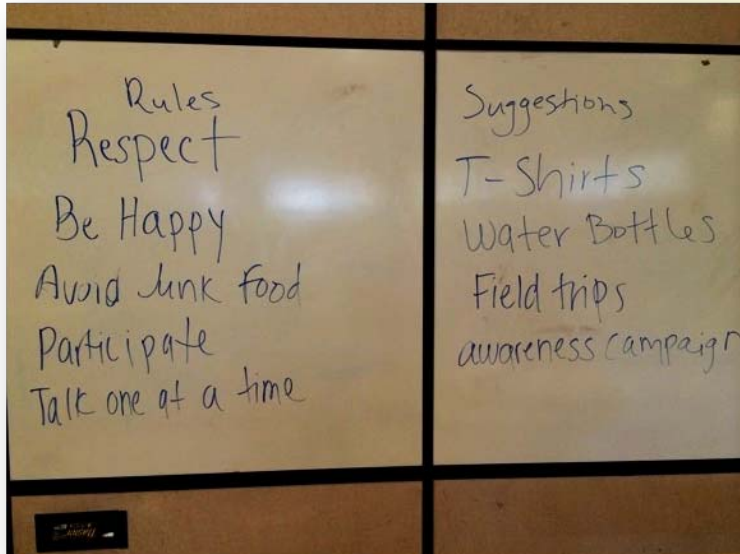 Rules
Respect
Be Happy
Avoid Junk Food
Participate
Talk one at a time
Suggestions
T-Shirts
Water Bottles
Field trips
awareness campaign